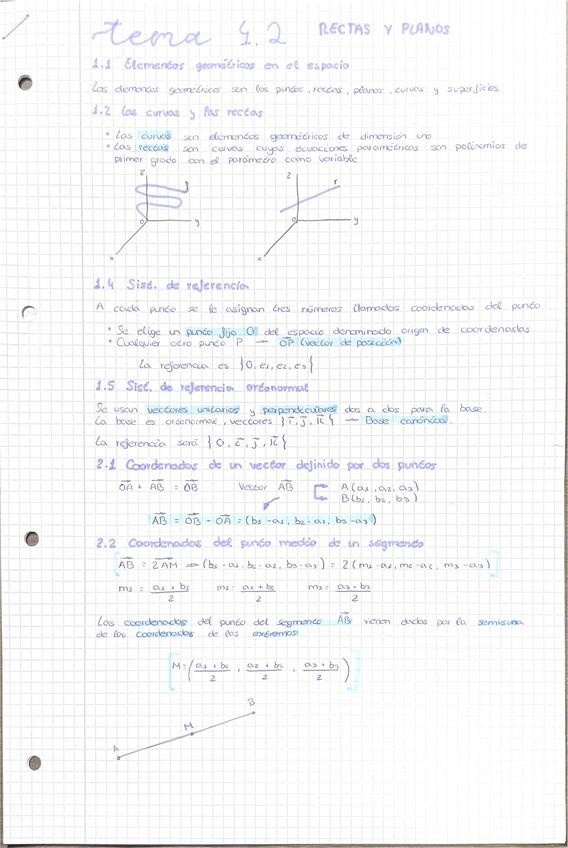 tema 4.2 RECTAS Y PLANOS
1.1 Elementos geométricos en el espacio
Los elementos geométricos son los puntos, rectas, planos, curvas y superficies
1.2 Las curvas y las rectas
• Las curvas son elementos geométricos de dimensión uno
• Las rectas son curvas cuyas ecuaciones paramétricas son polinomios de
primer grado con el parámetro como variable
z
o
y
x
z
r
o
y
x
1.4 Sist. de referencia
A cada punto se le asignan tres números llamados coordenadas del punto
• Se elige un punto fijo O del espacio denominado origen de coordenadas
• Cualquier otro punto P — OP (vector de posición)
La referencia es {O, e1, e2, e3}
1.5 Sist. de referencia ortonormal
Se usan vectores unitarios y perpendiculares dos a dos para la base
La base es ortonormal, vectores {i, j, k} — Base canónica.
La referencia será {O, i, j, k}
2.1 Coordenadas de un vector definido por dos puntos
OA + AB = OB Vector AB A(a1, a2, a3)
B(b1, b2, b3)
AB = OB - OA = (b1 - a1, b2 - a2, b3 - a3)
2.2 Coordenadas del punto medio de un segmento
AB = 2AM ⇒ (b1 - a1, b2 - a2, b3 - a3) = 2(m1 - a1, m2 - a2, m3 - a3)
m1 = a1 + b1 / 2 m2 = a2 + b2 / 2 m3 = a3 + b3 / 2
Las coordenadas del punto del segmento AB vienen dadas por la semisuma
de las coordenadas de los extremos
M = (a1 + b1 / 2, a2 + b2 / 2, a3 + b3 / 2)
B
M
A